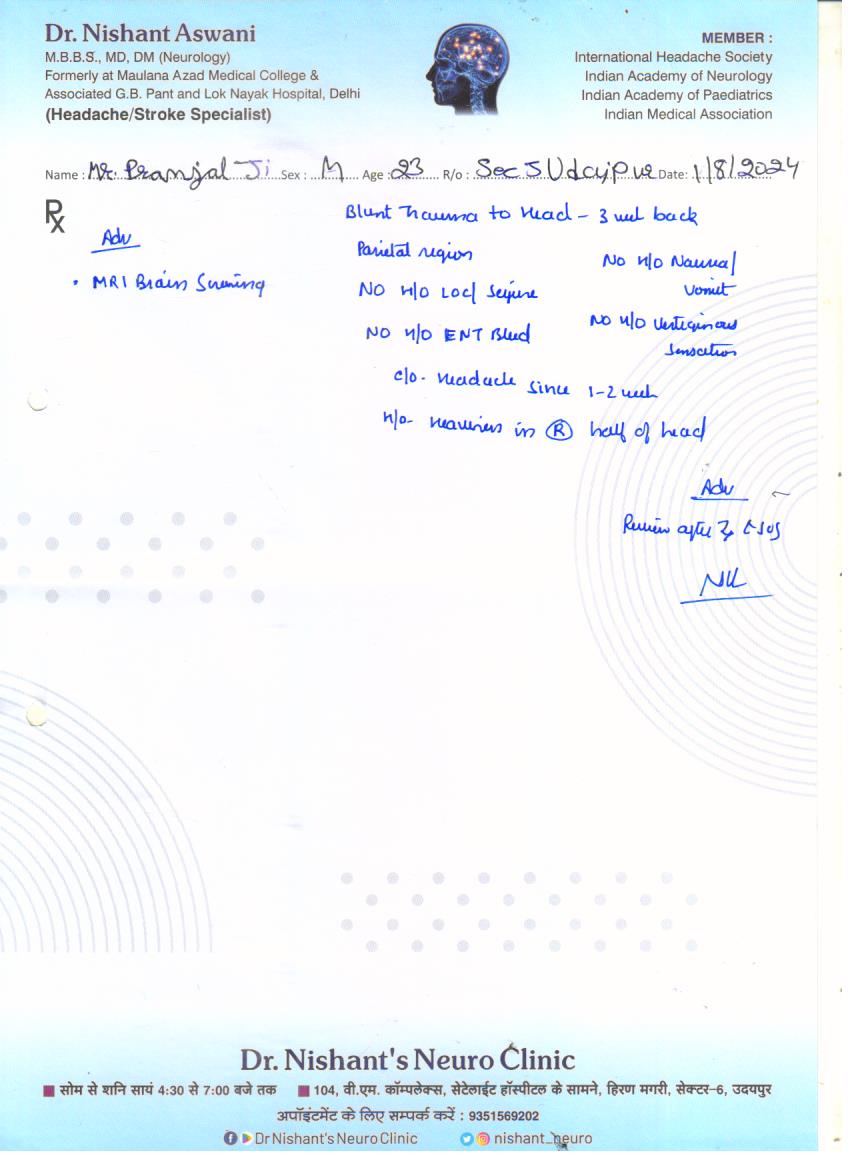 Dr. Nishant Aswani
M.B.B.S., MD, DM (Neurology)
Formerly at Maulana Azad Medical College &
Associated G.B. Pant and Lok Nayak Hospital, Delhi
(Headache/Stroke Specialist)
MEMBER :
International Headache Society
Indian Academy of Neurology
Indian Academy of Paediatrics
Indian Medical Association
Name : Mr. Pranjal Ji Sex : M Age : 23 R/o : Sec 5 Udaipur Date: 1/8/2024
Rx
Adv
• MRI Brain Screening
Blunt trauma to Head - 3 week back
Parietal region
No H/o Nausea/
Vomit
NO H/O LOC/ Seizure
NO H/O ENT Bleed
No H/o Vertiginous
Sensation
c/o - Headache since 1-2 week
H/o - Heaviness in (R) half of head
Adv
Review after SOS
Dr. Nishant's Neuro Clinic
सोम से शनि सायं 4:30 से 7:00 बजे तक 104, वी.एम. कॉम्पलेक्स, सेटेलाईट हॉस्पीटल के सामने, हिरण मगरी, सेक्टर-6, उदयपुर
अपॉइंटमेंट के लिए सम्पर्क करें : 9351569202
Dr Nishant's Neuro Clinic nishant_neuro